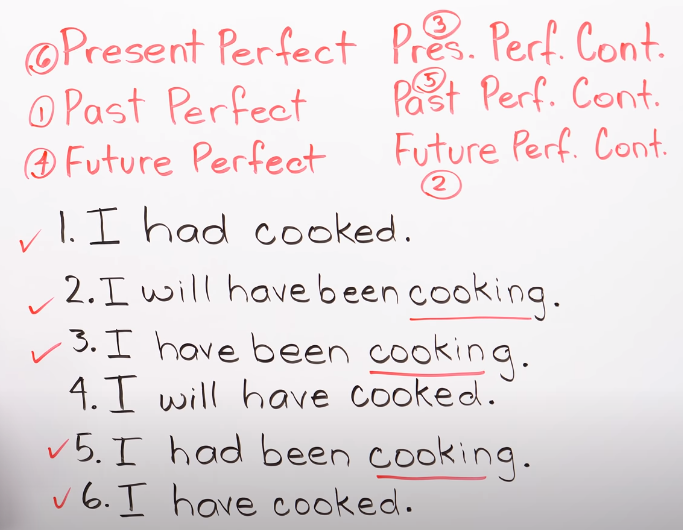 ⑥ Present Perfect
① Past Perfect
④ Future Perfect
③
Pres. Perf. Cont.
⑤
Past Perf. Cont.
Future Perf. Cont.
②
✓ 1. I had cooked.
✓ 2. I will have been cooking.
✓ 3. I have been cooking.
4. I will have cooked.
✓ 5. I had been cooking.
✓ 6. I have cooked.